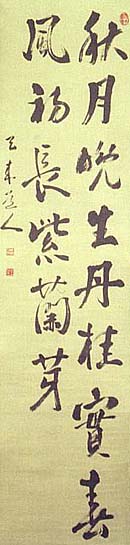 秋月晚生丹桂實春
風初長紫蘭芽
天来道人